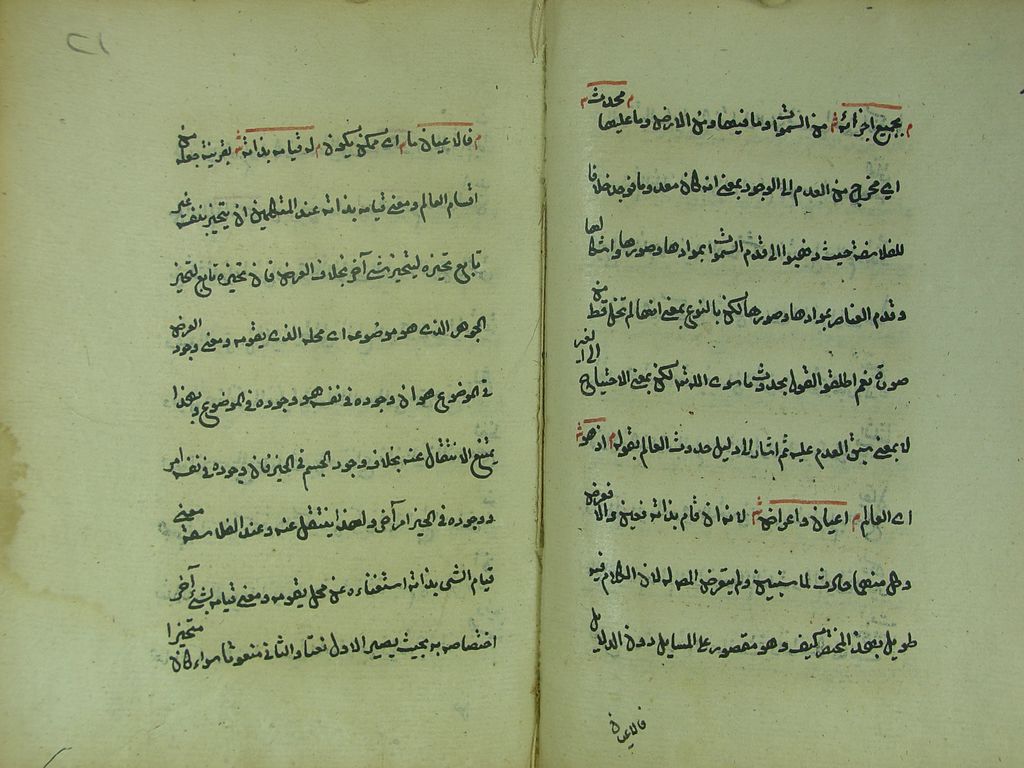 م بجميع اجزائه ش من السموات وما فيها ومن الارض وما عليها م محدث ش
اى مخرج من العدم الى الوجود بمعنى انه كان معدوما فوجد خلافا
للفلاسفة حيث ذهبوا الى قدم السموات بموادها وصورها واشكالها
وقدم العناصر بموادها وصورها لكن بالنوع بمعنى انها لم تخل قط من
صورة نعم اطلقوا القول بحدوث ما سوى الله تع لكن بمعنى الاحتياج الى الغير
لا بمعنى سبق العدم عليه ثم اشار الى دليل حدوث العالم بقوله م اذ هو ش
اى العالم م اعيان واعراض ش لانه ان قام بذاته فعين والا فعرض
وكل منهما حادث لما سنبين ولم يتعرض المص له لان الكلام فيه
طويل بهذا المختصر كيف وهو مقصور على المسايل دون الدلايل
فالاعيان
٢١
م فالاعيان ما م اى ممكن يكون م له قيام بذاته ش بقرينة جعله من
اقسام العالم ومعنى قيامه بذاته عند المتكلمين ان يتحيز بنفسه غير
تابع تحيزه لتحيز شئ آخر بخلاف العرض فان تحيزه تابع لتحيز
الجوهر الذى هو موضوعه اى محله الذى يقومه ومعنى وجود العرض
فى الموضوع هو ان وجوده فى نفسه هو وجوده فى الموضوع ولهذا
يمتنع الانتقال عنه بخلاف وجود الجسم فى الحيز فان وجوده فى نفسه امر
ووجوده فى الحيز امر آخر ولهذا ينتقل عنه وعند الفلاسفة معنى
قيام الشى بذاته استغناءه عن محل يقومه ومعنى قيامه بشئ آخر
اختصاصه به بحيث يصير الاول نعتا والثانى منعوتا سواء كان متحيزا